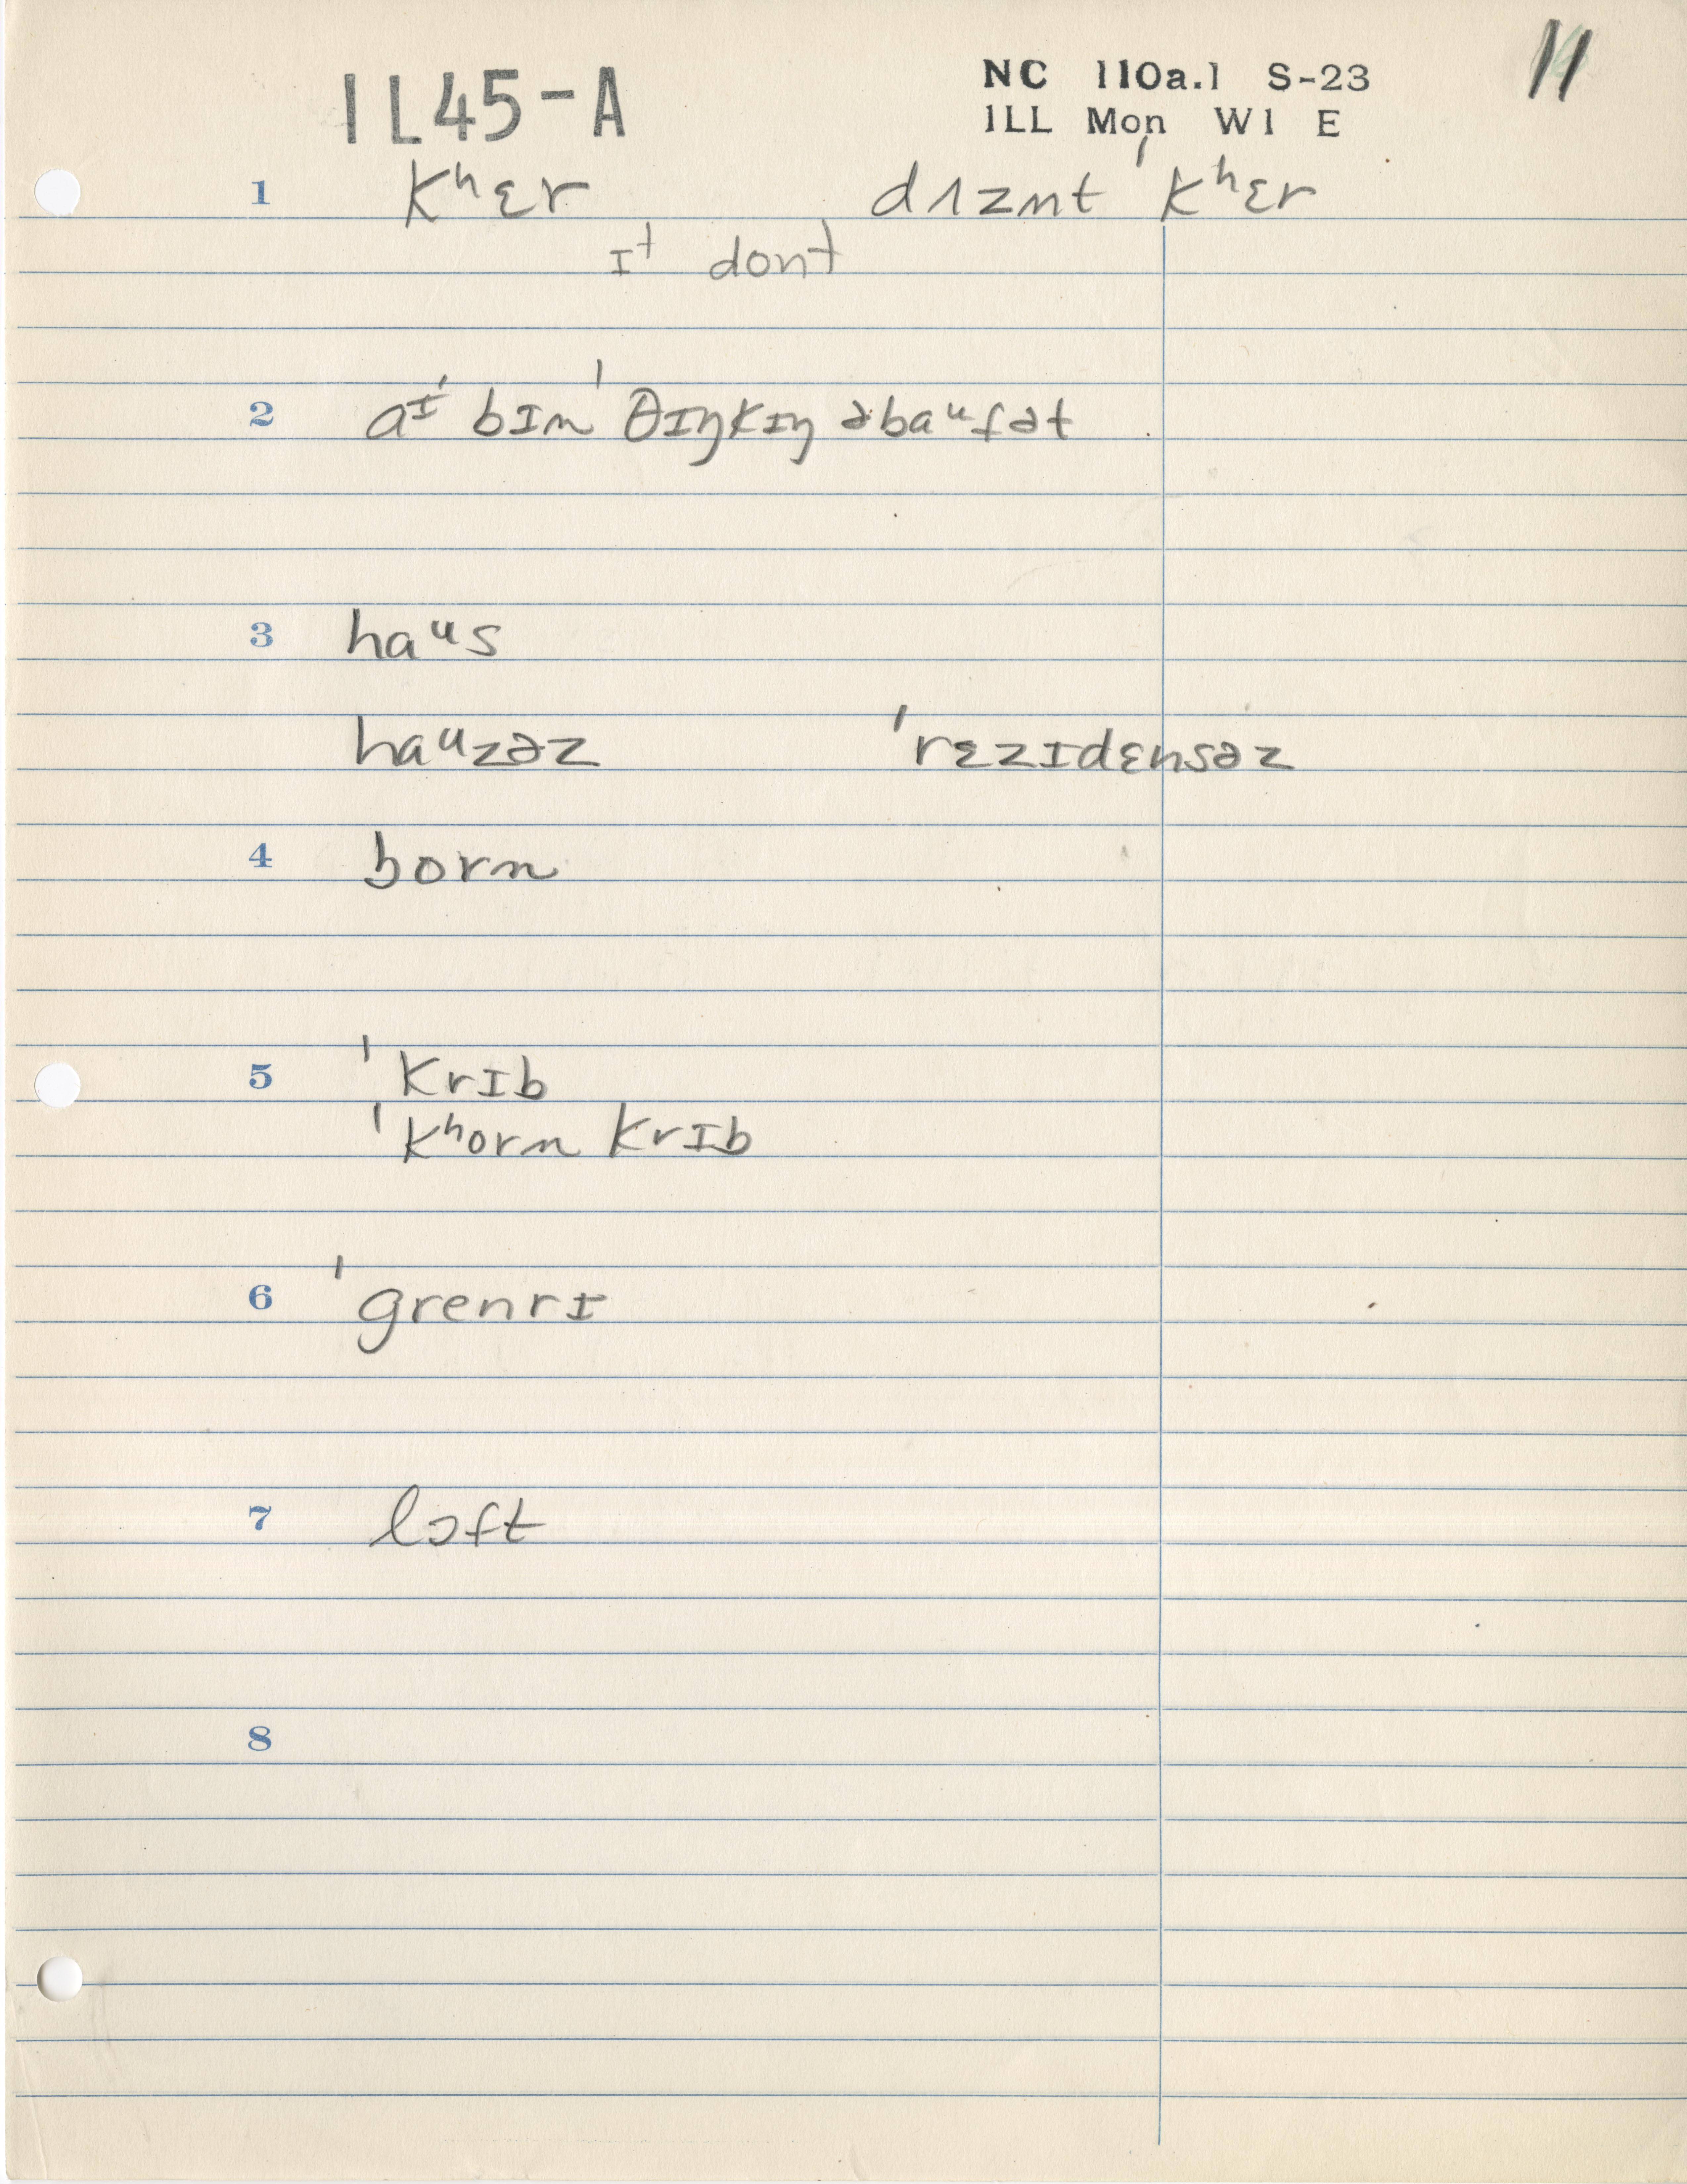 IL45-A
NC 110a.1 S-23
ILL Mon W1 E
11
1 kʰɛr dʌznt ˈkʰɛr
ɪt dont
2 aɪ bɪn ˈθɪŋkɪŋ əbaᵘʄət
3 haᵘs
haᵘzəz ˈrɛzɪdɛnsəz
4 born
5 ˈkrɪb
ˈkʰorn krɪb
6 ˈgrenrɪ
7 lɔft
8